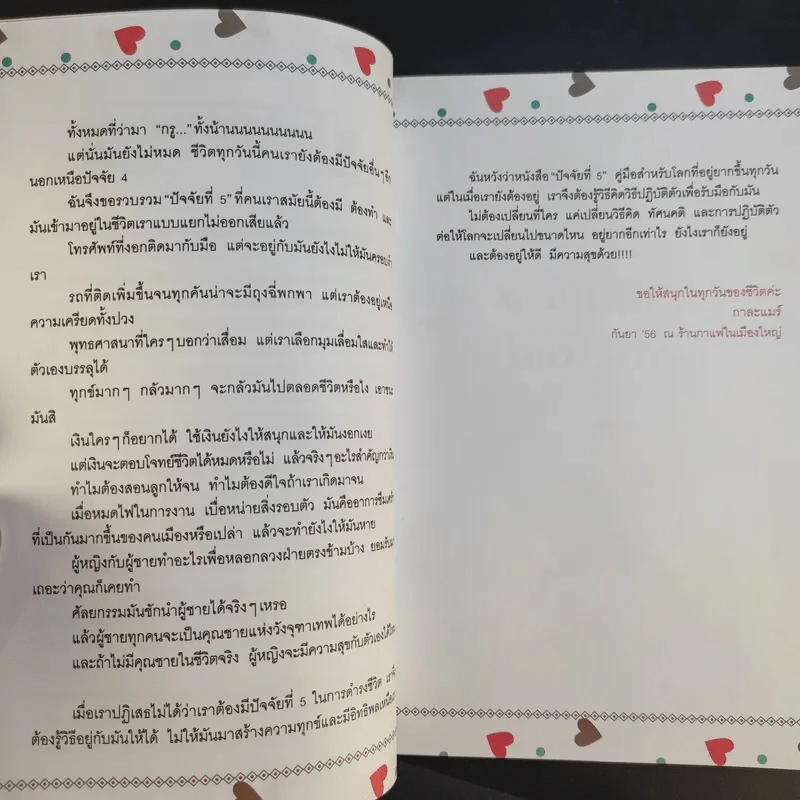 ทั้งหมดที่ว่ามา "กรู..."ทั้งน้านนนนนนนนนน
แต่นั่นมันยังไม่หมด ชีวิตทุกวันนี้คนเรายังต้องมีปัจจัยอื่นๆอีก
นอกเหนือปัจจัย 4
ฉันจึงขอรวบรวม "ปัจจัยที่ 5"ที่คนเราสมัยนี้ต้องมี ต้องทำ และ
มันเข้ามาอยู่ในชีวิตเราแบบแยกไม่ออกเสียแล้ว
โทรศัพท์ที่งอกติดมากับมือ แต่จะอยู่กับมันยังไงไม่ให้มันครอบงำ
เรา
รถที่ติดเพิ่มขึ้นจนทุกคันน่าจะมีถุงฉี่พกพา แต่เราต้องอยู่เหนือ
ความเครียดทั้งปวง
พุทธศาสนาที่ใครๆบอกว่าเสื่อม แต่เราเลือกมุมเลื่อมใสและทำให้
ตัวเองบรรลุได้
ทุกข์มากๆ กลัวมากๆ จะกลัวมันไปตลอดชีวิตหรือไง เอาชนะ
มันสิ
เงินใครๆก็อยากได้ ใช้เงินยังไงให้สนุกและให้มันงอกเงย
แต่เงินจะตอบโจทย์ชีวิตได้หมดหรือไม่ แล้วจริงๆอะไรสำคัญกว่ากัน
ทำไมต้องสอนลูกให้จน ทำไมต้องดีใจถ้าเราเกิดมาจน
เมื่อหมดไฟในการงาน เบื่อหน่ายสิ่งรอบตัว มันคืออาการซึมเศร้า
ที่เป็นกันมากขึ้นของคนเมืองหรือเปล่า แล้วจะทำยังไงให้มันหาย
ผู้หญิงกับผู้ชายทำอะไรเพื่อหลอกลวงฝ่ายตรงข้ามบ้าง ยอมรับมา
เถอะว่าคุณก็เคยทำ
ศัลยกรรมมันชักนำผู้ชายได้จริงๆเหรอ
แล้วผู้ชายทุกคนจะเป็นคุณชายแห่งวังจุฑาเทพได้อย่างไร
และถ้าไม่มีคุณชายในชีวิตจริง ผู้หญิงจะมีความสุขกับตัวเองได้
เมื่อเราปฏิเสธไม่ได้ว่าเราต้องมีปัจจัยที่ 5 ในการดำรงชีวิต
ต้องรู้วิธีอยู่กับมันให้ได้ ไม่ให้มันมาสร้างความทุกข์และมีอิทธิพลเหนือ
ฉันหวังว่าหนังสือ "ปัจจัยที่ 5" คู่มือสำหรับโลกที่อยู่ยากขึ้นทุกวัน
แต่ในเมื่อเรายังต้องอยู่ เราจึงต้องรู้วิธีคิดวิธีปฏิบัติตัวเพื่อรับมือกับมัน
ไม่ต้องเปลี่ยนที่ใคร แค่เปลี่ยนวิธีคิด ทัศนคติ และการปฏิบัติตัว
ต่อให้โลกจะเปลี่ยนไปขนาดไหน อยู่ยากอีกเท่าไร ยังไงเราก็ยังอยู่
และต้องอยู่ให้ดี มีความสุขด้วย!!!!
ขอให้สนุกในทุกวันของชีวิตค่ะ
กาละแมร์
กันยา '56 ณ ร้านกาแฟในเมืองใหญ่